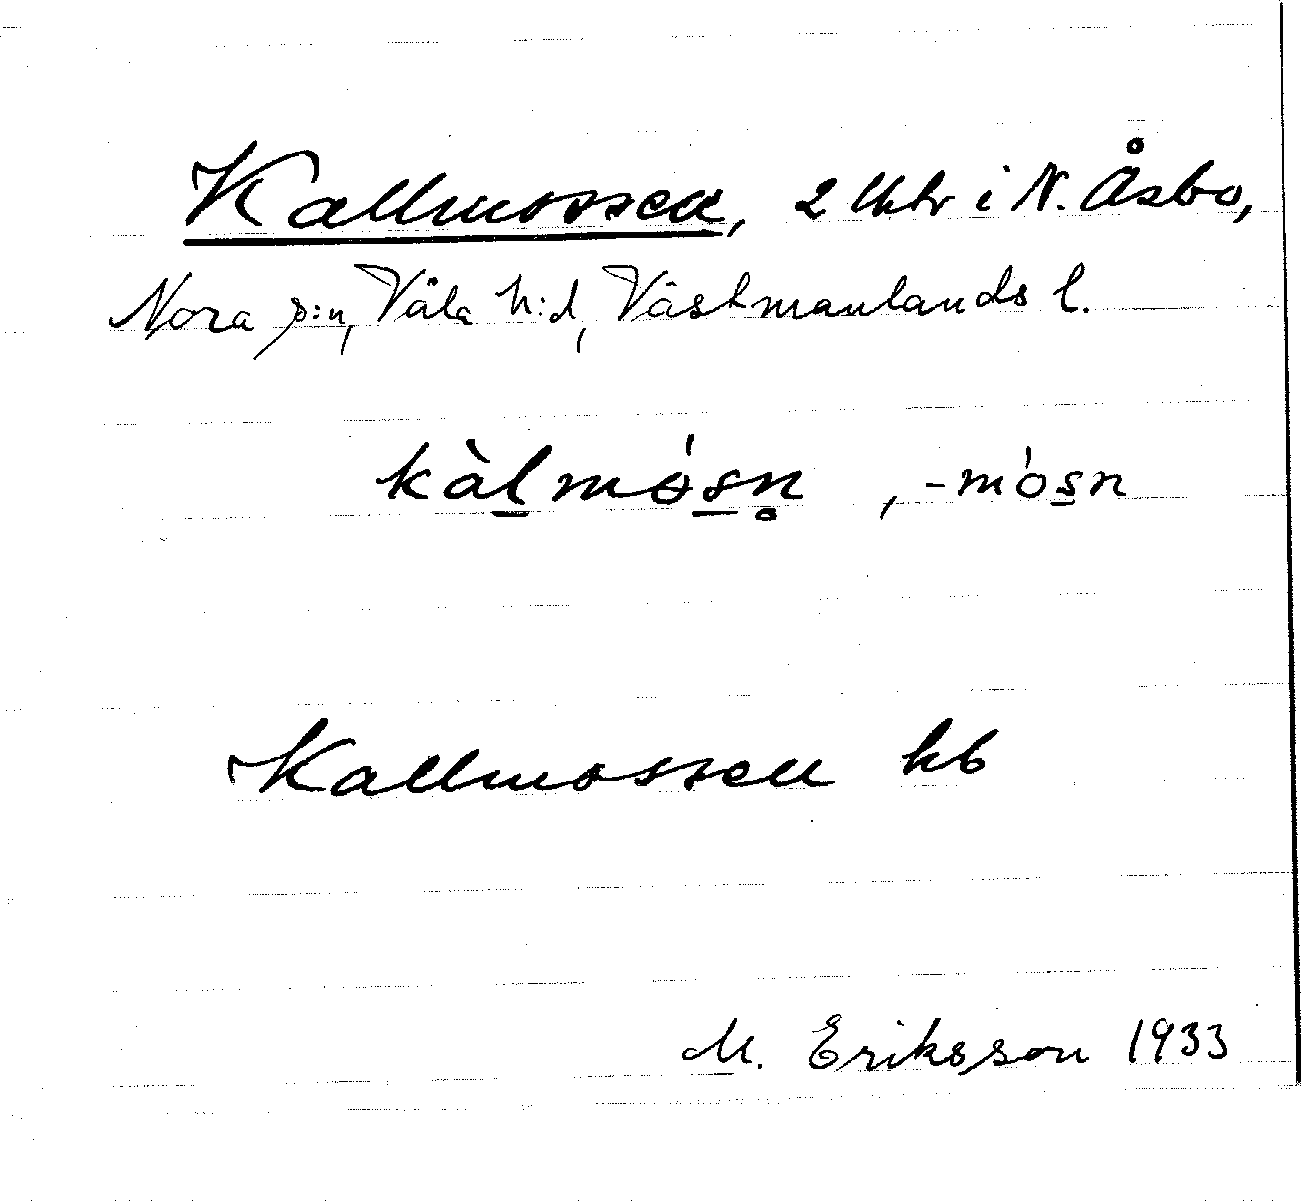 Kallmossen, 2 lhtr i N. Åsbo,
Nora s:n, Våla h:d, Västmanlands l.
kàlmósn̥, -mósn
Kallmossen kb
M. Eriksson 1933